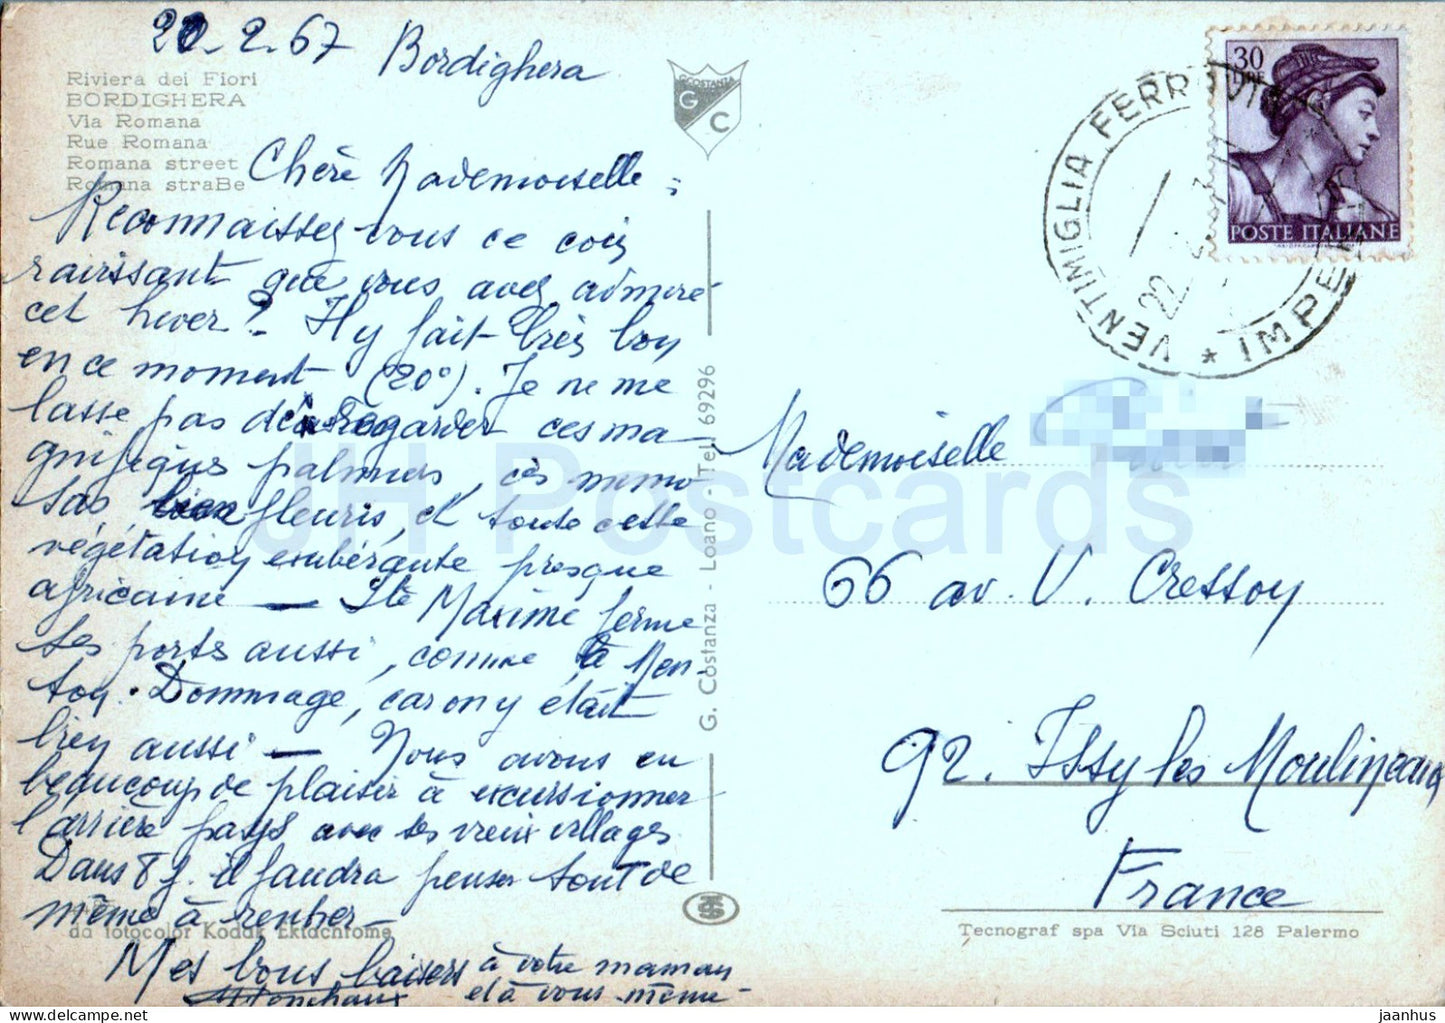 22.2.67 Bordighera
Riviera dei Fiori
BORDIGHERA
Via Romana
Rue Romana
Romana street
Romana straBe
Chère Mademoiselle :
Reconnaissez vous ce coin
ravissant que vous avez admiré
cet hiver ? Il y fait très bon
en ce moment (20°). Je ne me
lasse pas de regarder ces ma-
gnifiques palmiers, ces mimo
sas, bien fleuris, et toute cette
végétation exubérante presque
africaine — Ste Maxime ferme
ses ports aussi, comme à Men-
ton. Dommage, car on y était
bien aussi — Nous avons eu
beaucoup de plaisir à excursionner
l'arrière pays avec ses vieux villages
Dans 8 j. il faudra penser tout de
même à rentrer
da fotocolor Kodak Ektachrome
Mes bons baisers à votre maman
et à vous-même
G. COSTANZA
G C
G. Costanza - Loano - Tel. 69296
30
LIRE
POSTE ITALIANE
VENTIMIGLIA FERROVIA
* IMPERIA
22
Mademoiselle
66 av. V. Cresson
92. Issy les Moulineaux
France
Tecnograf spa Via Sciuti 128 Palermo
JH Postcards
jaanhus